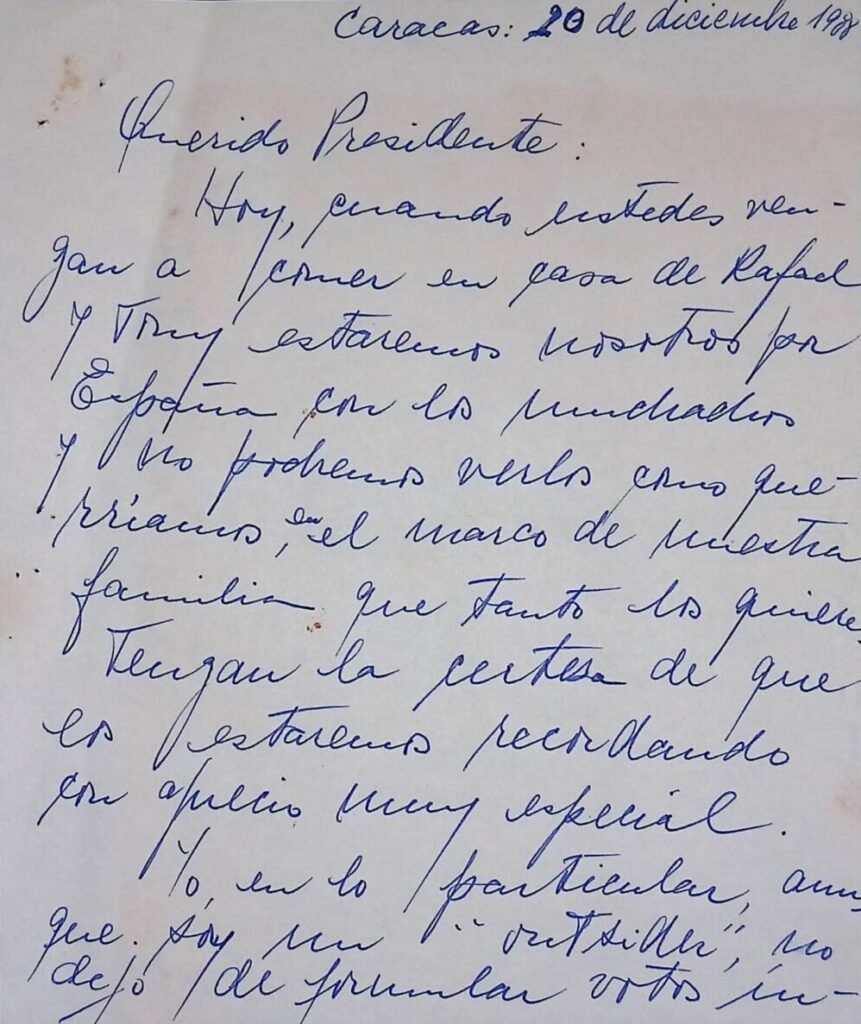 Caracas: 20 de diciembre 1988
Querido Presidente:
Hoy, cuando ustedes ven-
gan a comer en casa de Rafael
y Tony estaremos nosotros por
España con los muchachos
y no podremos verlos como que-
rríamos, en el marco de nuestra
familia que tanto los quiere.
Tengan la certesa de que
los estaremos recordando
con aprecio muy especial.
Yo, en lo particular, aun-
que soy un "outsider", no
dejo de formular votos in-